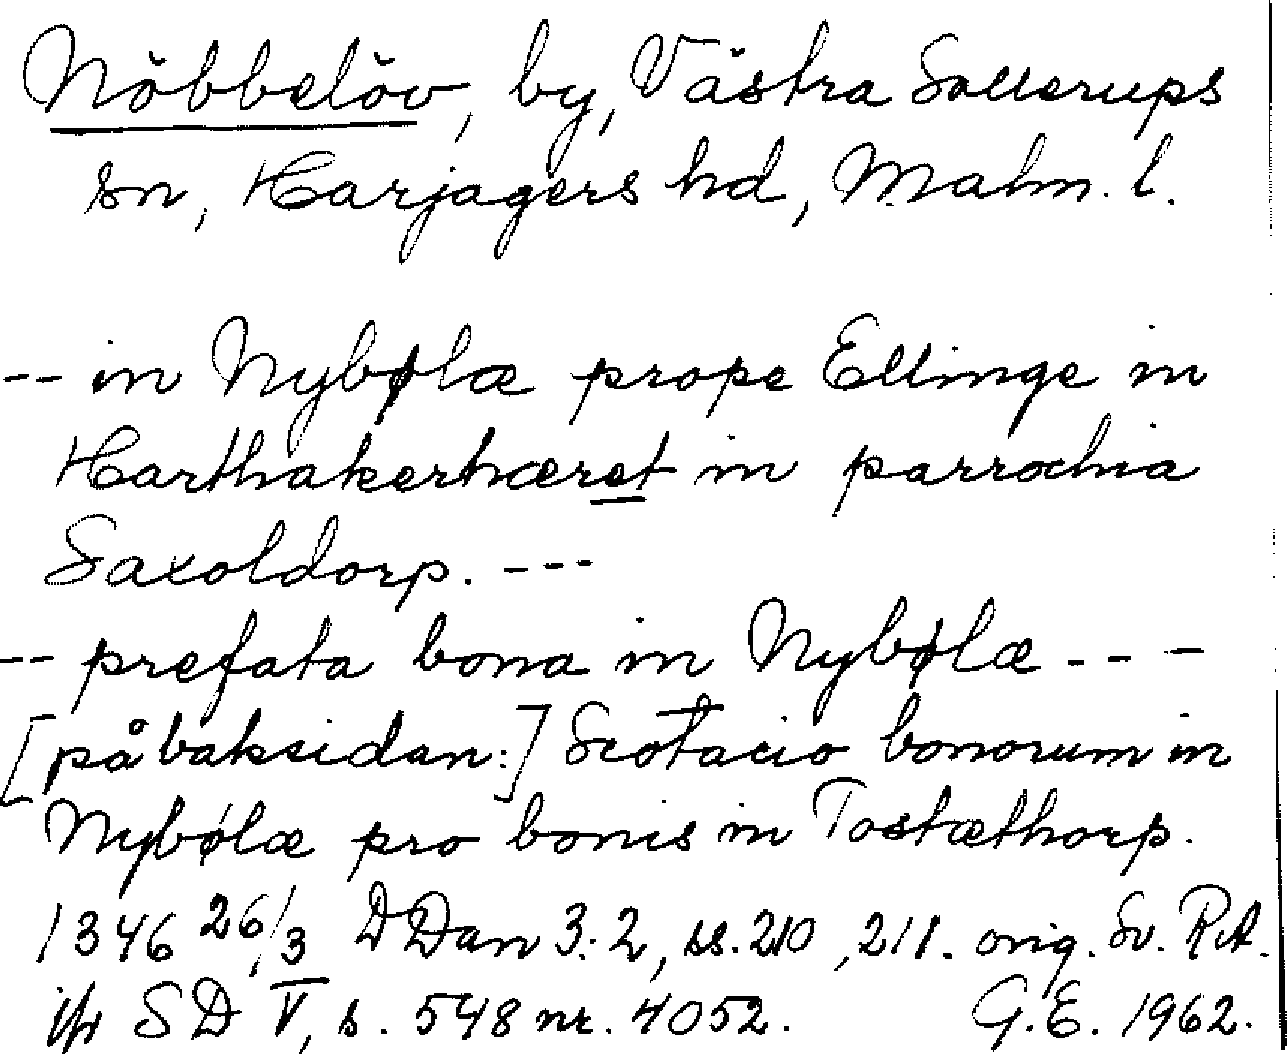 Nöbbelöv, by, Västra Sallerups
sn, Harjagers hd, Malm. l.
-- in Nybølæ prope Ellinge in
Harthakerhæret in parrochia
Saxoldorp. ---
-- prefata bona in Nybølæ ---
[på baksidan:] Scotacio bonorum in
Nybølæ pro bonis in Tostæthorp.
1346 26/3 DDan 3:2, ss. 210, 211. orig. Sv. RA.
jfr SD V, s. 548 nr. 4052. G.E. 1962.